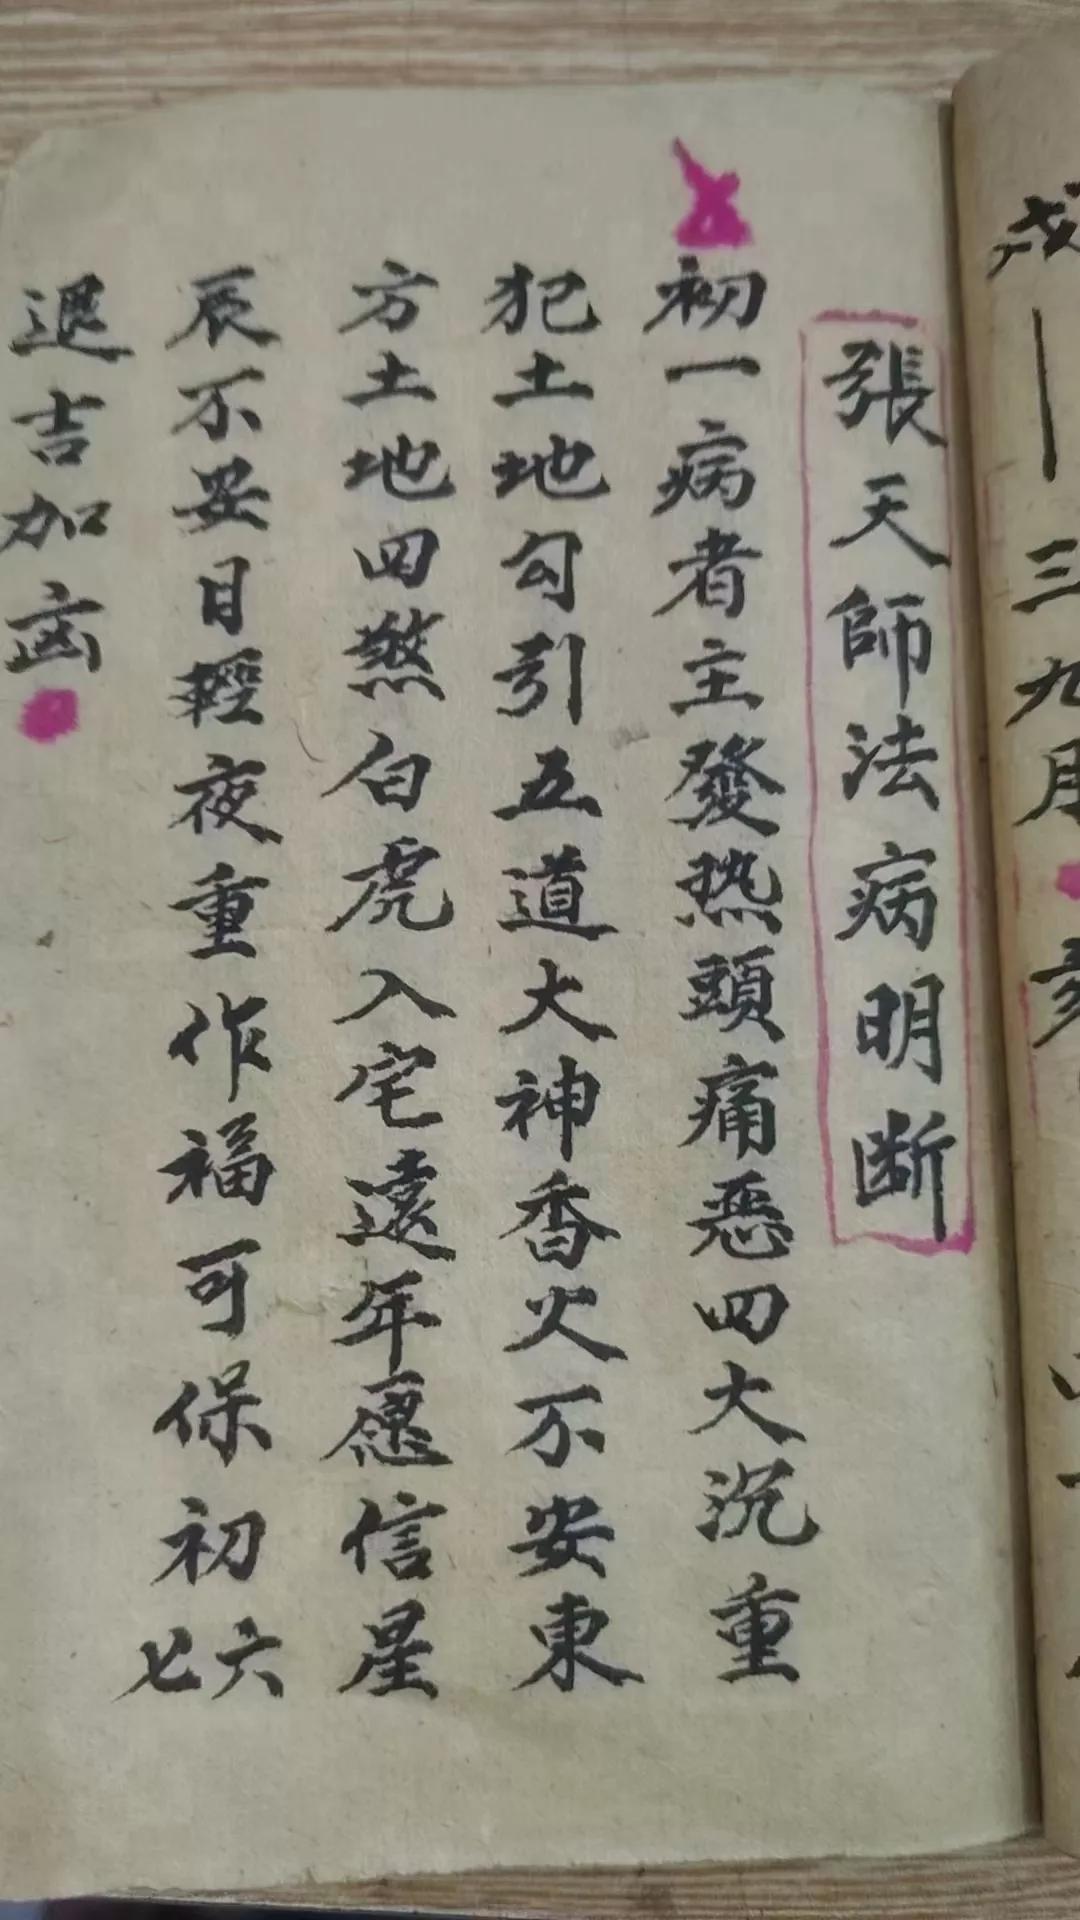 張天師法病明断
初一病者主發热頭痛惡四大沉重
犯土地勾引五道大神香火不安東
方土地四煞白虎入宅遠年愿信星
辰不安日輕夜重作福可保初六七
退吉加凶
三九月